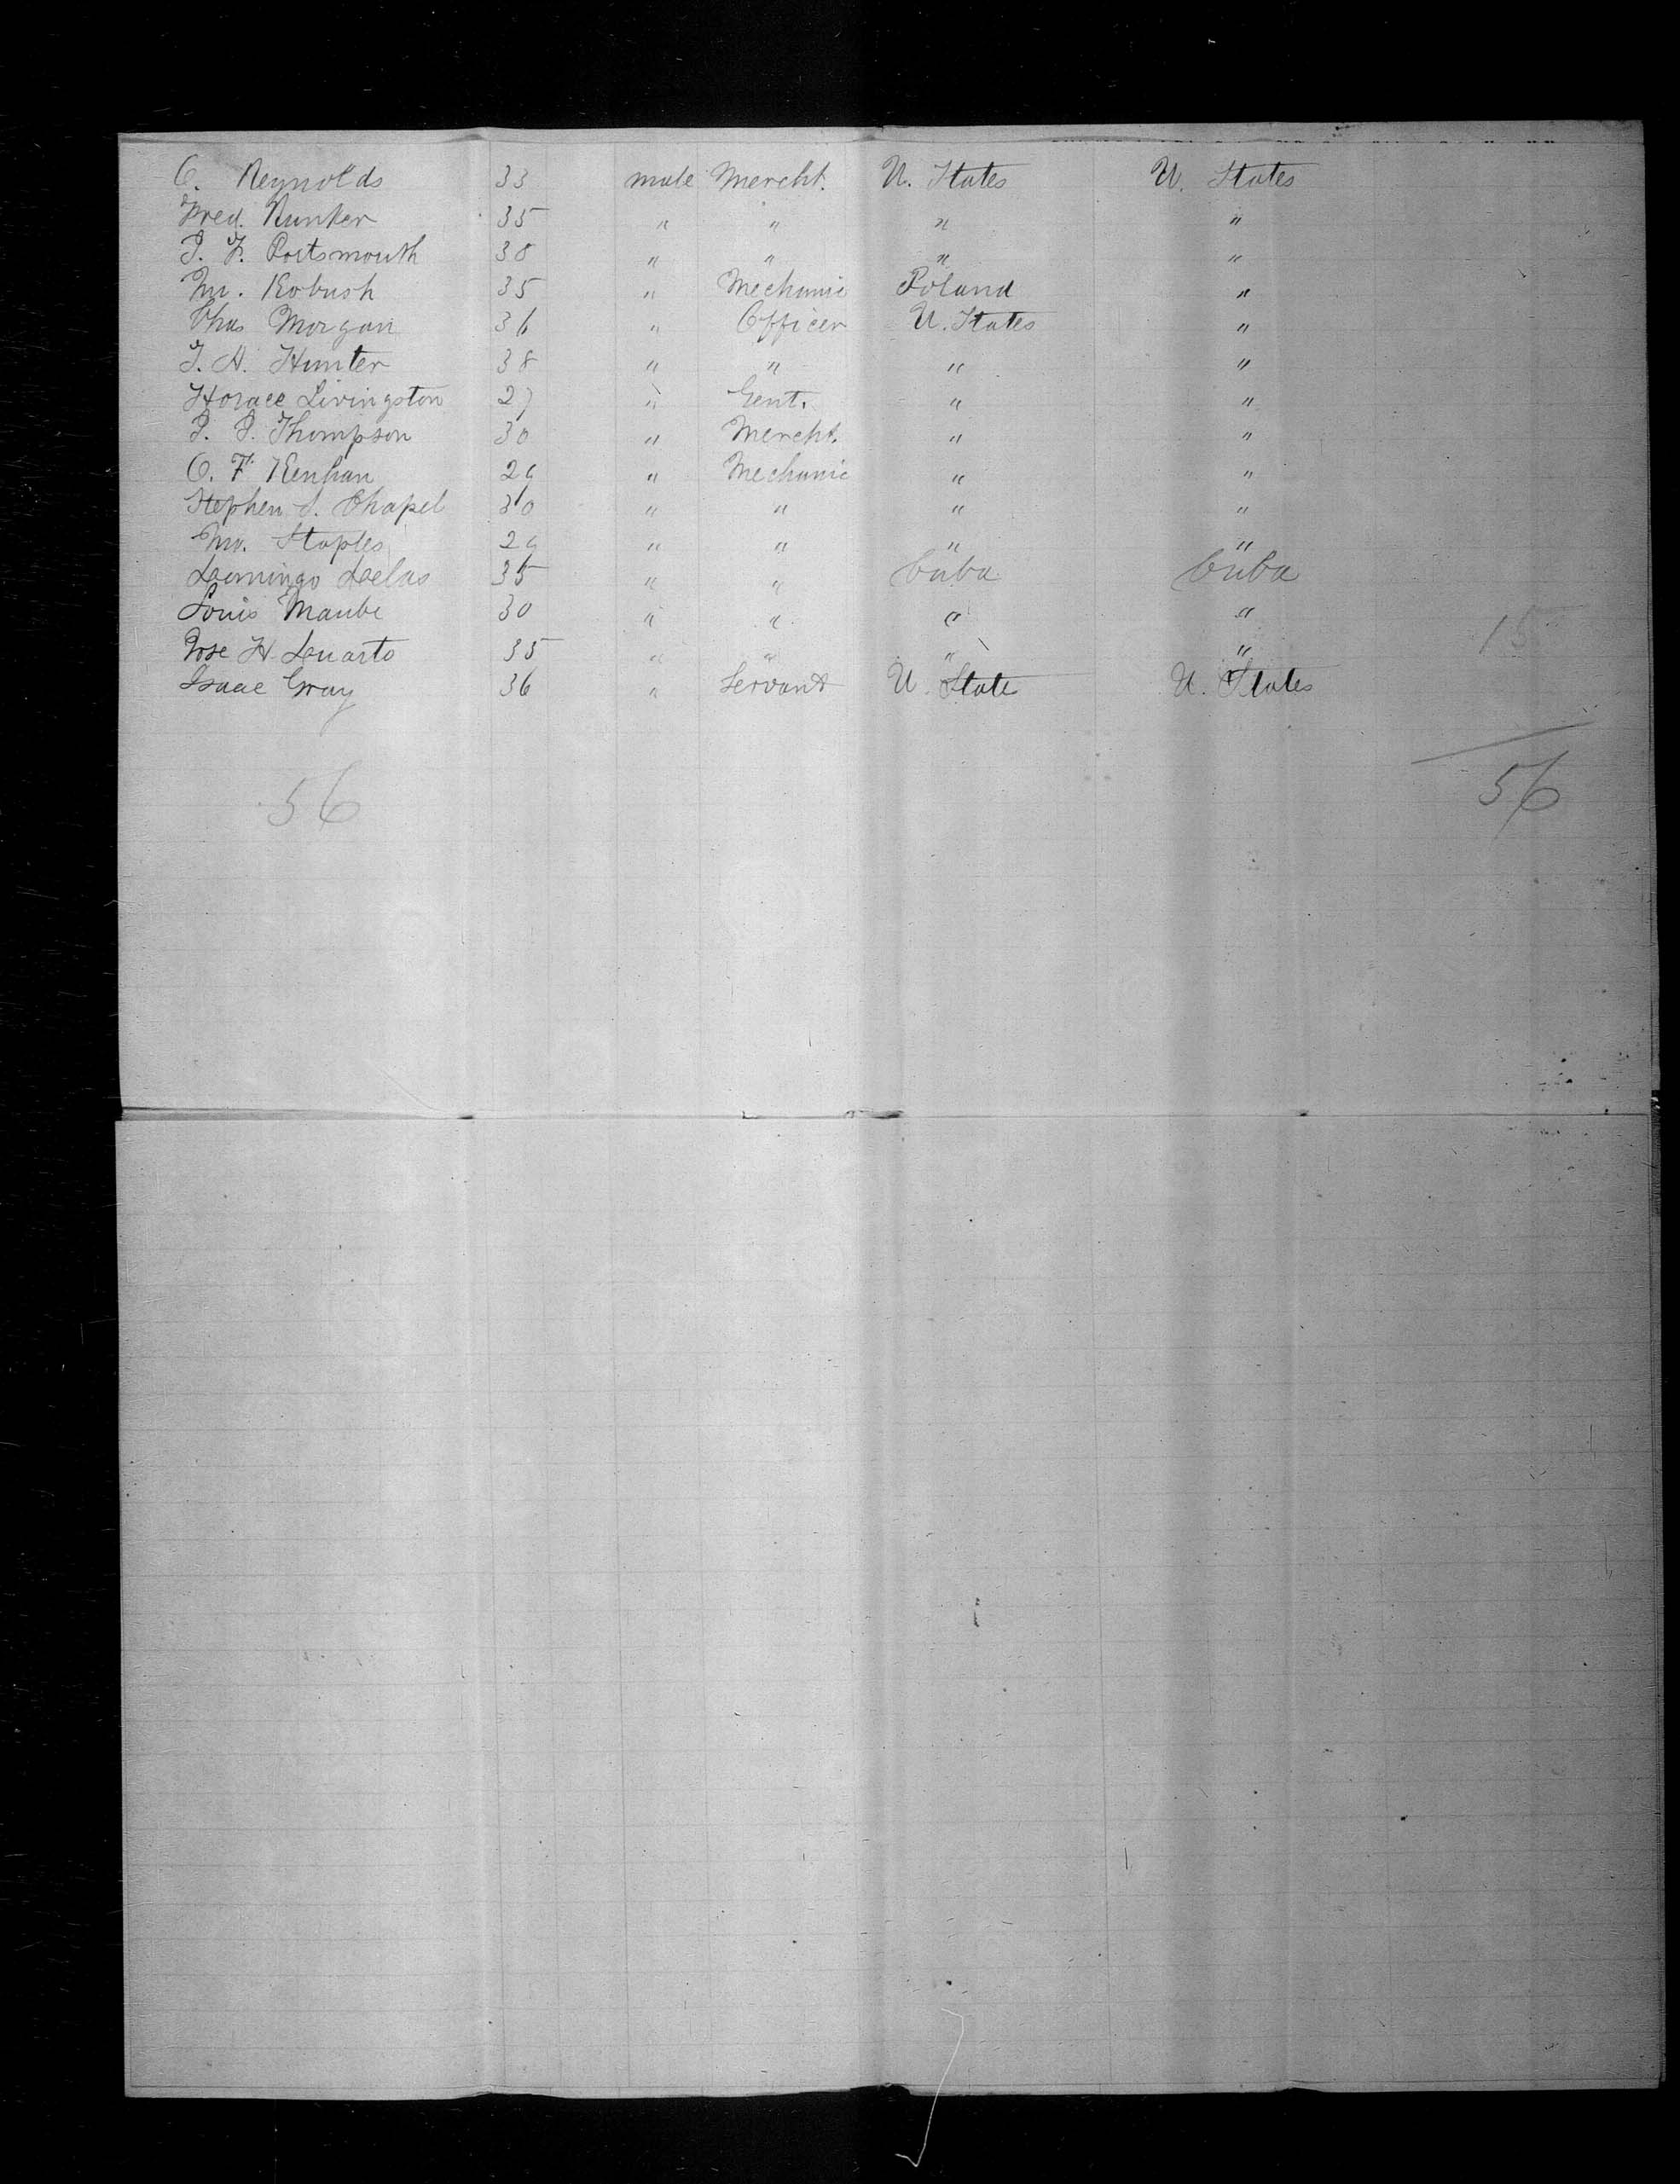 C. Reynolds 33 male Mercht. U. States U. States
Fred. Bunker 35 " " " "
P. F. Portsmouth 38 " " " "
Mr. Kobush 35 " Mechanic Poland "
Chas Morgan 36 " Officer U. States "
T. A. Hunter 38 " " " "
Horace Livingston 27 " Gent. " "
P. P. Thompson 30 " Mercht. " "
C. F. 29 " Mechanic " "
Stephen S. Chapel 30 " " " "
Mr. Staples 29 " " " "
Domingo 35 " " Cuba Cuba
Louis Maube 30 " " " "
Jose H. 35 " " " " 15
Isaac Gray 36 " Servant U. State U. States
56 56